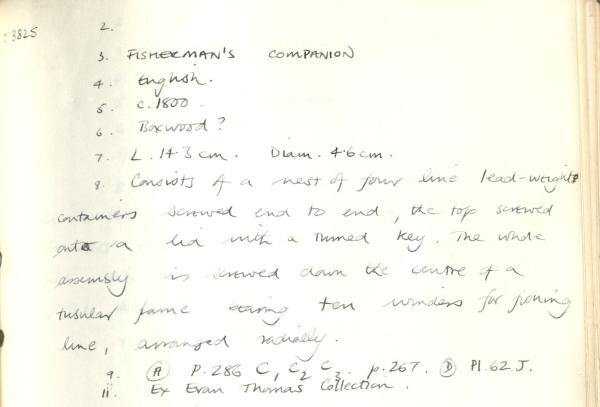 23825
2.
3. FISHERMAN'S COMPANION
4. English.
5. c.1800.
6. Boxwood?
7. L. 14.3 cm. Diam. 4.6 cm.
8. Consists of a nest of four line lead-weight
containers screwed end to end, the top screwed
onto a lid with a turned key. The whole
assembly is screwed down the centre of a
tubular frame bearing ten winders for
line, arranged radially.
9. (A) P.286 C, C2 C3. p.267. (D) Pl.62 J.
11. Ex Evan Thomas Collection.